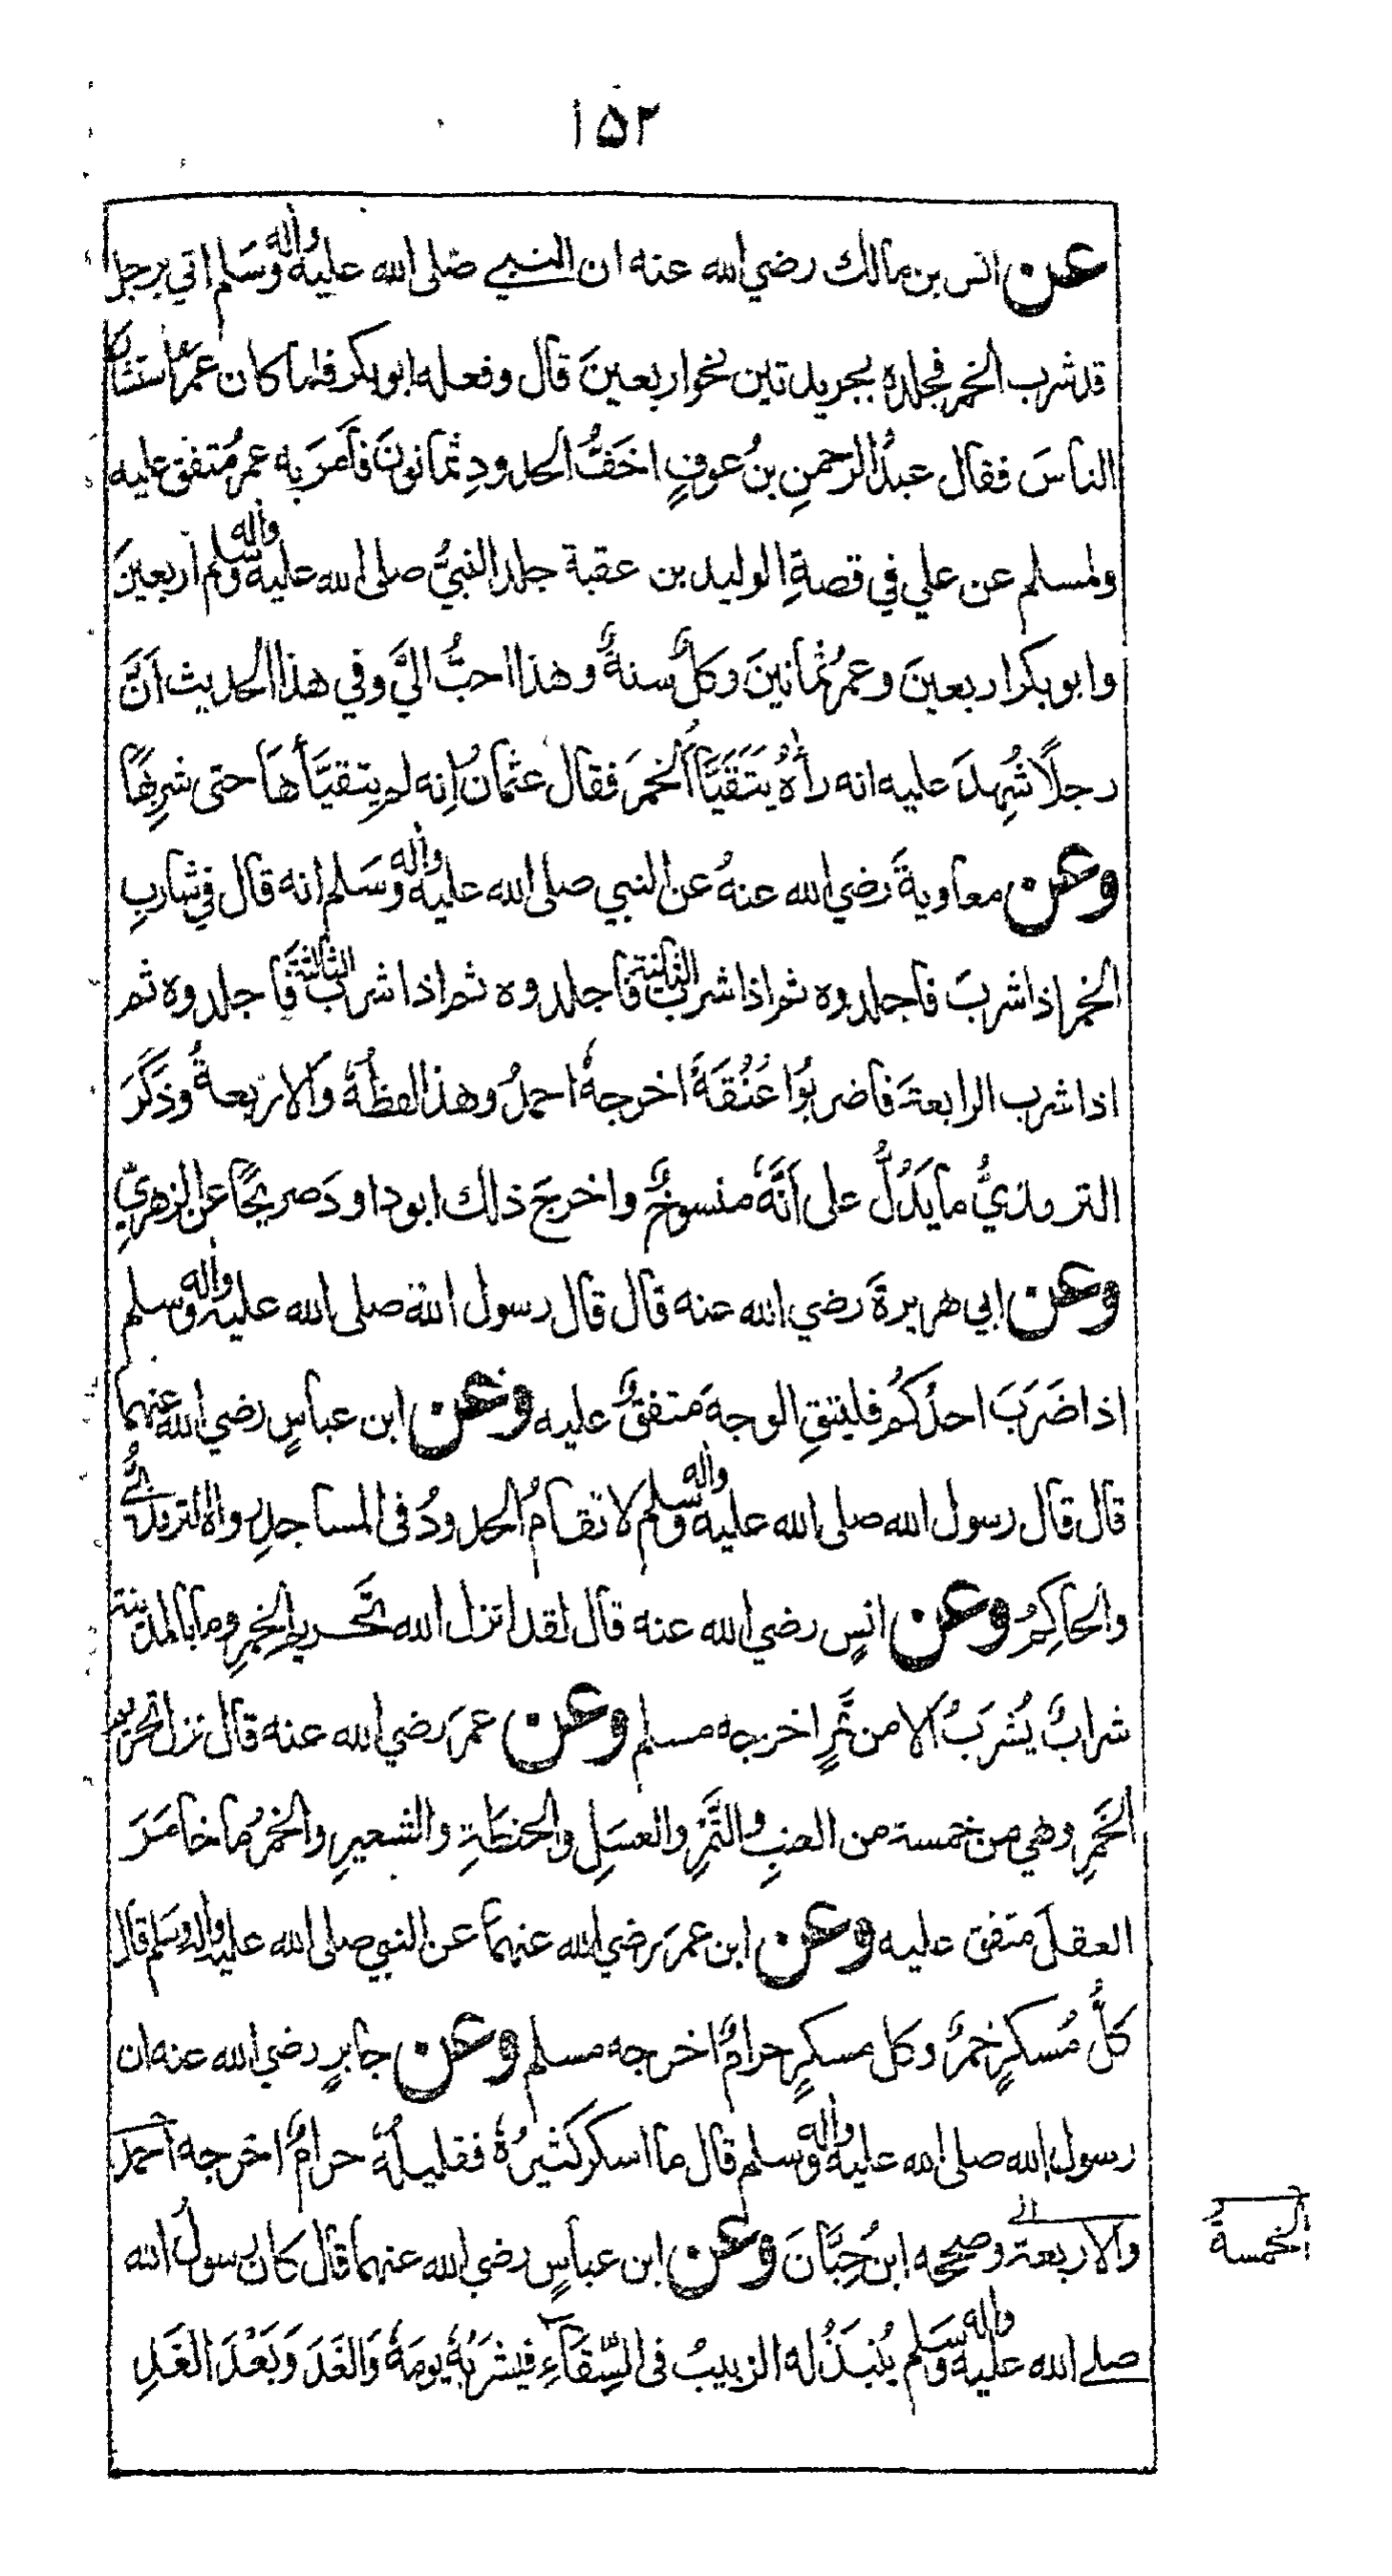 ١٥٢
عن انس بن مالك رضي الله عنه ان النبي صلى الله عليه واله وسلم اتي برجل
قد شرب الخمر فجلده بجريدتين نحو اربعينَ قال وفعله ابو بكر فلما كان عمرُ استشار
الناسَ فقال عبدُ الرحمنِ بنُ عوفٍ اخَفُّ الحدودِ ثمانونَ فاَمَرَ به عمرُ مُتفق عليه
ولمسلم عن علي في قصةِ الوليد بن عقبة جلد النبيُّ صلى الله عليه واله وسلم اَربعينَ
وابو بكر اربعينَ وعمرُ ثمانينَ وكلٌ سنةٌ وهذا احبُّ اليَّ وفي هذا الحديث اَنَّ
رجلًا شُهِدَ عليه انه رأهُ يَتَقَيَّأ الخمرَ فقال عثمانُ اِنه لم يتقيَّأها حتى شرِبَها
وعن معاويةَ رضي الله عنهُ عن النبي صلى الله عليه واله وسَلم انه قال في شاربِ
الخمر اذا شربَ فاجلدوه ثم اذا شرب الثانية فاجلدوه ثم اذا شرب الثالثةَ فاجلدوه ثم
اذا شرب الرابعةَ فاضربُوا عُنُقَهُ اخرجهُ احمدُ وهذا لفظُهُ والاربعةُ وذَكَرَ
الترمذيُّ ما يَدُلُّ على اَنَّهُ منسوخٌ واخرجَ ذلك ابو داود صريحًا عن الزهريِّ
وعن ابي هريرةَ رضي الله عنه قال قال رسول الله صلى الله عليه واله وسلم
اذا ضَرَبَ احدُكُم فليتقِ الوجهَ متفقٌ عليه وعن ابن عباسٍ رضي الله عنهما
قال قال رسول الله صلى الله عليه واله وسلم لا تقامُ الحدودُ في المساجدِ رواه الترمذيُّ
والحاكِمُ وعن انسٍ رضي الله عنه قال لقد انزل الله تَحريم الخمرِ وما بالمدينة
شرابٌ يُشرَبُ الا من تمرٍ اخرجه مسلم وعن عمرَ رضي الله عنه قال نزل تحريم
الخَمرِ وهي من خمسة من العنبِ والتَّمرِ والعسَلِ والحنطَةِ والشعيرِ والخمرُ ما خامَرَ
العقلَ متفق عليه وعن ابن عمرَ رضي الله عنهما عن النبي صلى الله عليه واله وسلم قال
كلُّ مُسكرٍ خمرٌ وكل مسكرٍ حرامٌ اخرجه مسلم وعن جابرٍ رضي الله عنه ان
رسول الله صلى الله عليه واله وسلم قال ما اسكر كثيرُهُ فقليلُهُ حرامٌ اخرجه احمدُ
والاربعة وصححه ابنُ حِبَّانَ وعن ابن عباسٍ رضي الله عنهما قال كان رسولُ الله
صلى الله عليه واله وسَلم يُنبَذُ له الزبيبُ في السِّقاءِ فيشرَبُهُ يومَهُ والغَدَ وَبَعْدَ الغَدِ
الخمسةُ